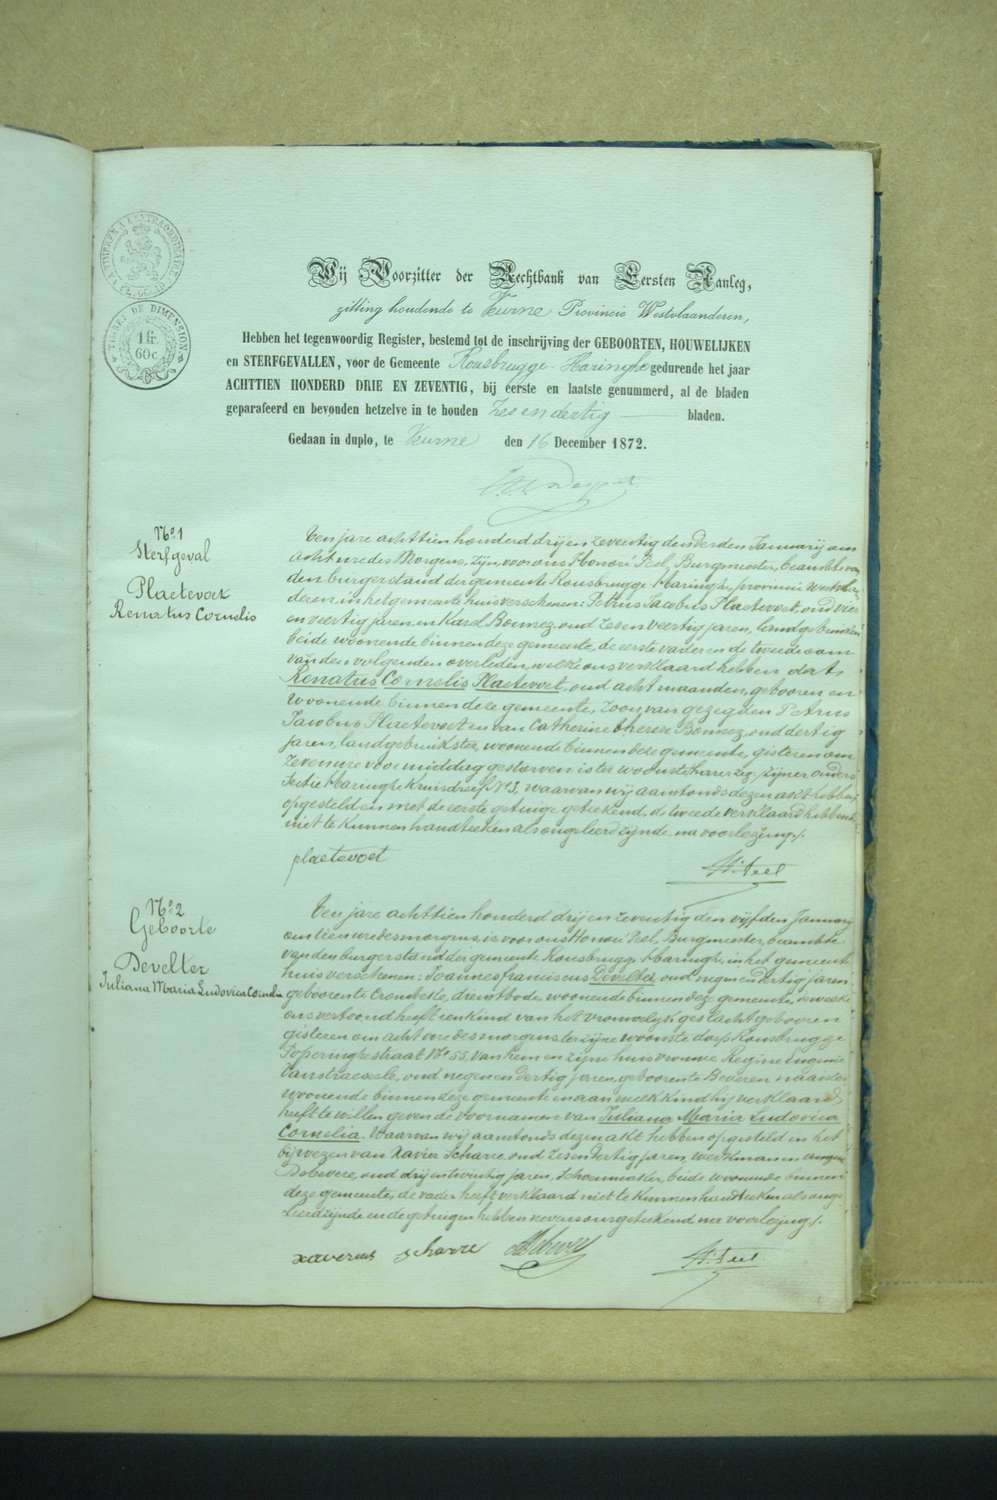 1 fr.
60c
TIMBRE DE DIMENSION
Wij Voorzitter der Rechtbank van Eersten Aanleg,
zitting houdende te Veurne Provincie Westvlaanderen,
Hebben het tegenwoordig Register, bestemd tot de inschrijving der GEBOORTEN, HOUWELIJKEN
en STERFGEVALLEN, voor de Gemeente Rousbrugge-Haringhe gedurende het jaar
ACHTTIEN HONDERD DRIE EN ZEVENTIG, bij eerste en laatste genummerd, al de bladen
geparafeerd en bevonden hetzelve in te houden Zes en dertig bladen.
Gedaan in duplo, te Veurne den 16 December 1872.
No 1
Sterfgeval
Plaetevoet
Renatus Cornelis
Ten jare achttien honderd drij en zeventig den derden January om
acht ure des Morgens, zijn, voor ons Honoré Peel, Burgmeester, beambte van
den burgerstand der gemeente Rousbrugge-Haringhe, provincie Westvlaen-
deren, in het gemeentehuis verschenen: Petrus Jacobus Plaetevoet, oud vier
en veertig jaren en Karel Bonnez, oud zes en veertig jaren, landgebruikers
beide woonende binnen deze gemeente, de eerste vader en de tweede oom
van den volgenden overleden, welke ons verklaard hebben dat
Renatus Cornelis Plaetevoet, oud acht maanden, gebooren en
woonende binnen deze gemeente, zoon van gezegden Petrus
Jacobus Plaetevoet en van Catherine Therese Bonnez, oud dertig
jaren, landgebruikster, woonende binnen deze gemeente, gisteren om
zeven ure voormiddag gestorven is ter woonste zijner ouders
Sectie Haringhe Kruisdreef No 3, waarvan wij aanstonds dezen akt hebben
opgesteld en met de eerste getuige geteekend, de tweede verklaard hebbende
niet te kunnen handteeken als ongeleerd zijnde na voorlezing./.
plaetevoet
H. Peel
No 2
Geboorte
Develter
Juliana Maria Ludovica Cornelia
Ten jare achttien honderd drij en zeventig den vijfden January
om tien ure des morgens, is voor ons Honoré Peel, Burgmeester, beambte
van den burgerstand der gemeente Rousbrugge-Haringhe, in het gemeente
huis verschenen: Joannes franciscus Develter, oud negen en dertig jaren
geboren te Crombeke, dienstbode, woonende binnen deze gemeente, dewelke
ons vertoond heeft een kind van het vrouwelijk geslacht gebooren
gisteren om acht ure des morgens ter zijne woonste dorp Rousbrugge
Poperinghestraat No 55, van hem en zijne huisvrouwe Regine Eugenie
Vanstraeseele, oud negen en dertig jaren, geboren te Beveren
woonende binnen deze gemeente en aan welk kind hij verklaard
heeft te willen geven de voornamen van Juliana Maria Ludovica
Cornelia. Waarvan wij aanstonds dezen akt hebben opgesteld in het
bijwezen van Xavier Scharre, oud zes en dertig jaren, werkman en
Debevere, oud drij en twintig jaren, schoenmaker, beide woonende binnen
deze gemeente, de vader heeft verklaard niet te kunnen handteeken als onge-
leerd zijnde en de getuigen hebben nevens ons geteekend na voorlezing./.
xaverius scharre
Debevere
H. Peel